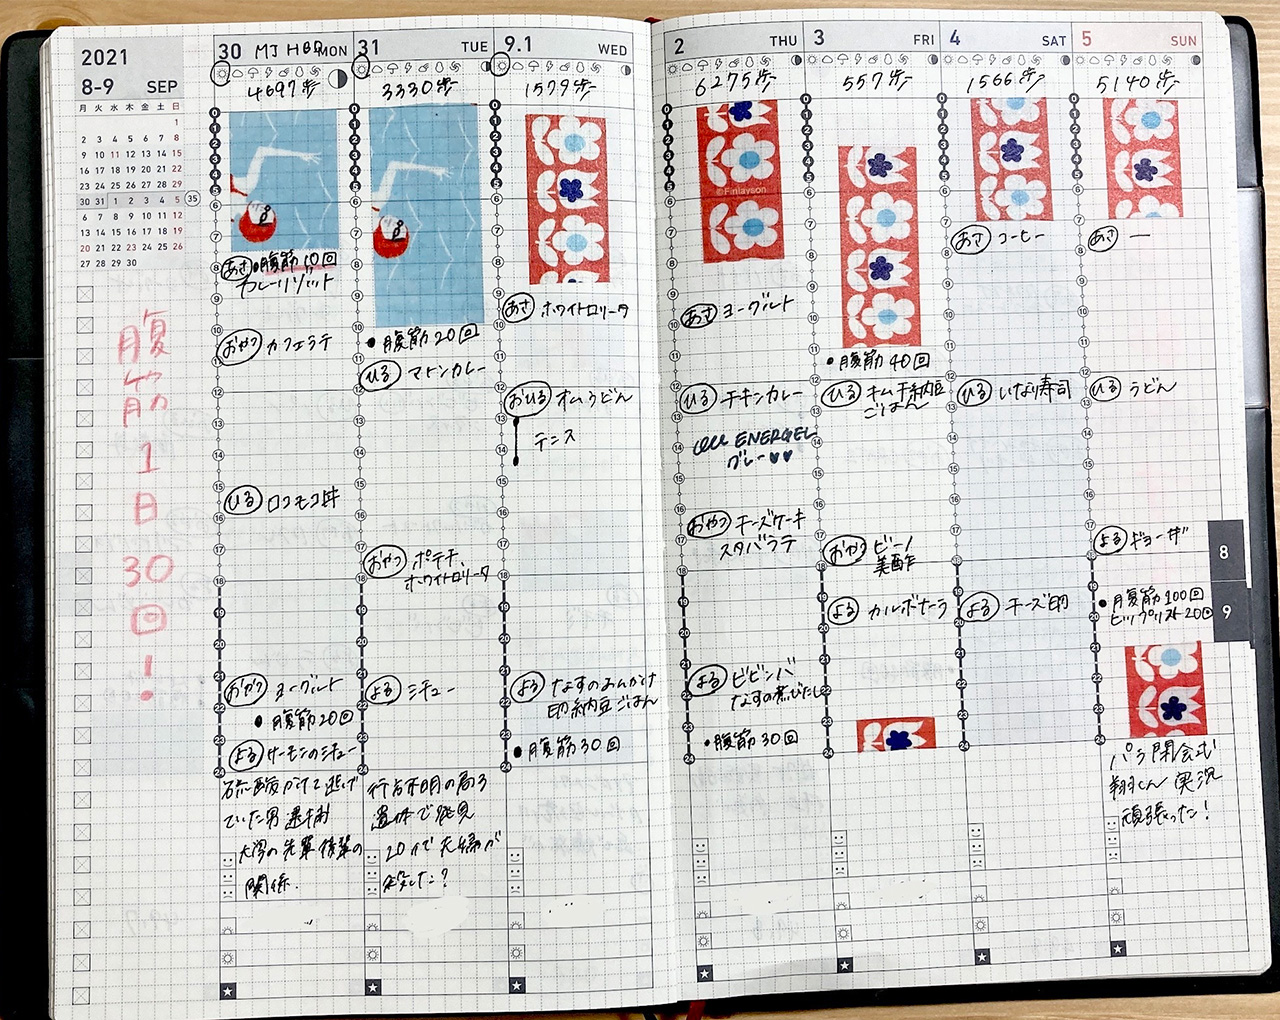 2021
8–9 SEP
月 火 水 木 金 土 日
1
2 3 4 5 6 7 8
9 10 11 12 13 14 15
16 17 18 19 20 21 22
23 24 25 26 27 28 29
30 31 1 2 3 4 5 35
6 7 8 9 10 11 12
13 14 15 16 17 18 19
20 21 22 23 24 25 26
27 28 29 30
腹筋1日30回!
30 MJ HBD MON
4697歩
あさ ●腹筋10回
カレーリゾット
おやつ カフェラテ
ひる ロコモコ丼
おやつ ヨーグルト
●腹筋20回
よる サーモンのシチュー
硫酸かけて逃げ
ていた男逮捕
大学の先輩後輩の
関係.
31 TUE
3330歩
●腹筋20回
ひる マトンカレー
おやつ ポテチ、
ホワイトロリータ
よる シチュー
行方不明の局ろ
遺体で発見
20代夫婦が
殺した?
9.1 WED
1579歩
あさ ホワイトロリータ
おひる オムうどん
テニス
よる なすのあんかけ
卵納豆ごはん
●腹筋30回
2 THU
6275歩
©Finlayson
あさ ヨーグルト
ひる チキンカレー
ENERGEL
グレー♥♥
おやつ チーズケーキ
スタバラテ
よる ビビンバ
なすの煮びたし
●腹筋30回
3 FRI
557歩
●腹筋40回
ひる キムチ納豆
ごはん
おやつ ピノ
美酢
よる カルボナーラ
4 SAT
1566歩
あさ コーヒー
ひる いなり寿司
よる チーズ卵
5 SUN
5140歩
あさ ー
ひる うどん
よる ギョーザ
●腹筋100回
ヒップリフト20回
パラ閉会式
翔くん実況
頑張った!
8
9